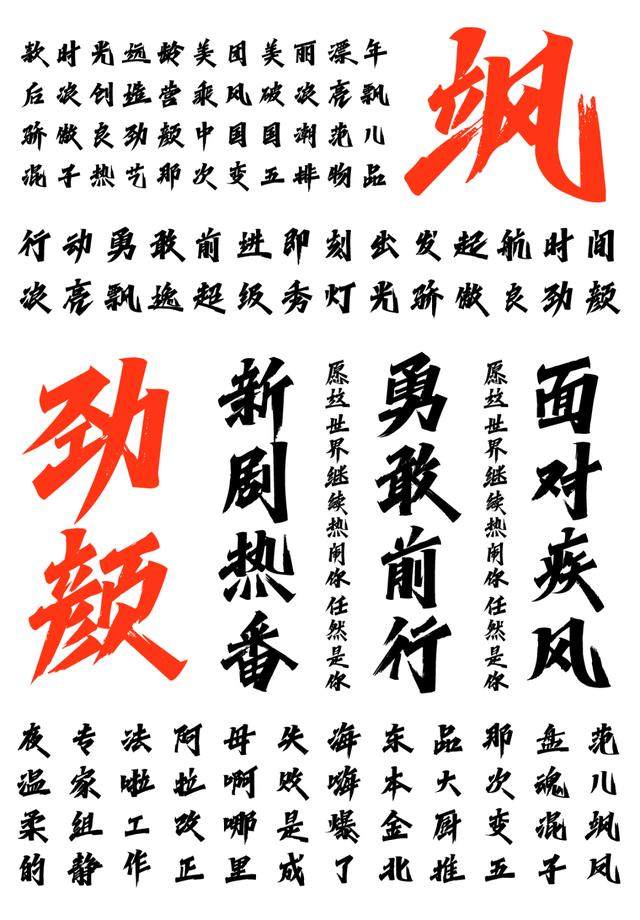 款时光远龄美团美丽漂年
后浪创造营乘风破浪亮飘
骄傲良劲颜中国国潮范儿
混子热艺那次变五排物品
飒
行动勇敢前进即刻出发起航时间
浪亮飘逸超级秀灯光骄傲良劲颜
劲颜
新剧热番
愿这世界继续热闹你任然是你
勇敢前行
愿这世界继续热闹你任然是你
面对疾风
夜专法阿母失海东品那盘范
温家啦拉啊败嗨本大次魂儿
柔组工改哪是爆金厨变混飒
的静作正里成了北推五子风